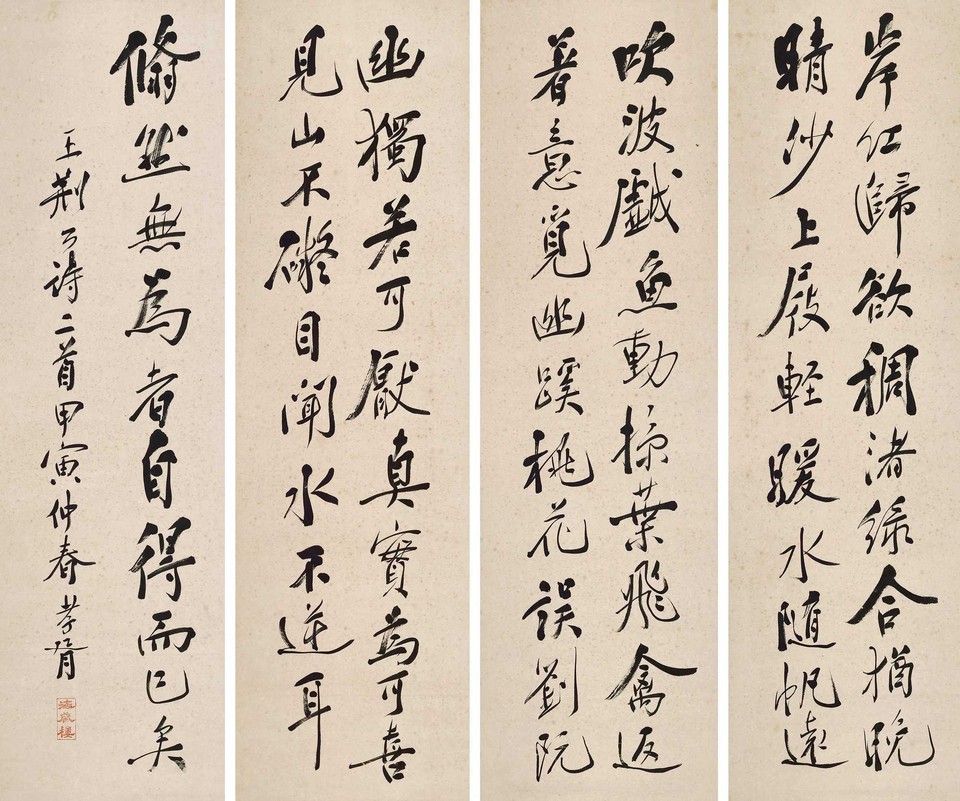 岸紅歸欲稠渚綠合猶晚
晴沙上屐輕暖水隨帆遠
吹波戲魚動掠葉飛禽返
著意覓幽蹊桃花誤劉阮
幽獨若可厭真實為可喜
見山不礙目聞水不逆耳
翛然無為者自得而已矣
王荊公詩二首甲寅仲春孝胥
海藏樓